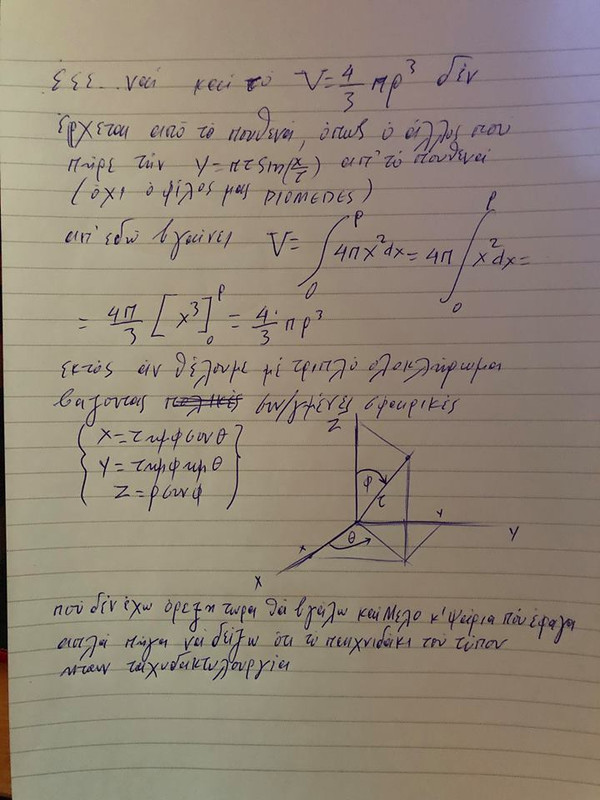 εεε... ναι και το V=4/3 πρ³ δέν
έρχεται από το πουθενά, όπως ο άλλος που
πήρε την y=πτsin(x/τ) απ' το πουθενά
(όχι ο φίλος μας DIOMEDES)
απ' εδώ βγαίνει V= ∫₀^ρ 4πx²dx = 4π ∫₀^ρ x²dx =
= 4π/3 [x³]₀^ρ = 4/3 πρ³
εκτός άν θέλουμε με τριπλό ολοκλήρωμα
βάζοντας πολικές συν/γμένες σφαιρικές
{ x=τημφσυνθ
y=τημφημθ
z=ρσυνφ }
z
φ
τ
y
Y
x
θ
X
πού δεν έχω όρεξη τώρα θα βγάλω και κ' ψάρια πού έφαγα
απλά πήγα να δείξω ότι το παιχνιδάκι του τύπου
ήταν ταχυδακτυλουργία